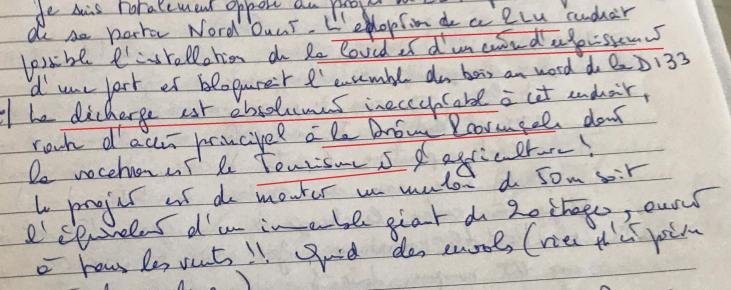 Je suis totalement opposé au projet
de sa partie Nord Ouest. L'adoption de ce PLU rendrait
possible l'installation de la Coved et d'un centre d'enfouissement
d'une part et bloquerait l'ensemble des bois au nord de la D133
La décharge est absolument inacceptable à cet endroit,
route d'accès principal à la Drôme Provençale dont
la vocation est le Tourisme et l'agriculture!
le projet est de monter un de 50m soit
l'équivalent d'un immeuble géant de 20 étages, ouvert
à tous les vents!! Quid des envols (rien n'est prévu